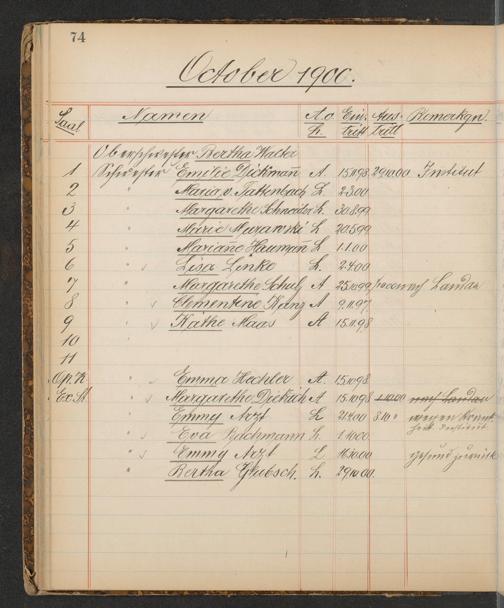 74
October 1900.
Saal Namen A.o. L. Ein- tritt Aus- tritt Bemerkgn.
Oberschwester Bertha Walter
1 Schwester Emilie Dickmañ A. 15.10.98 29.10.00 Institut
2 " Maria v. Tattenbach L. 2.3.00
3 " Margarethe Schneider L. 30.8.99
4 " Marie Murawski L. 20.5.99
5 " Mariañe Haumañ L. 1.1.00
6 " Lisa Linke L. 2.4.00
7 " Margarethe Schulz A. 25.10.99 nach Landau
8 " Clementine A. 9.11.97
9 " Käthe Maas A. 15.11.98
10 "
11
Op. K. " Emma Hachler A. 15.10.98
Ex. St. " Margarethe Dietrich A. 15.10.98 1.10.00 nach Landau
" Emmy Arzt L. 21.4.00 8.10 " wegen Krank
heit
" Eva Bachmann L. 1.10.00
" Emmy Arzt L. 16.10.00 gesund zurück
" Bertha Glubsch. L. 29.10.00